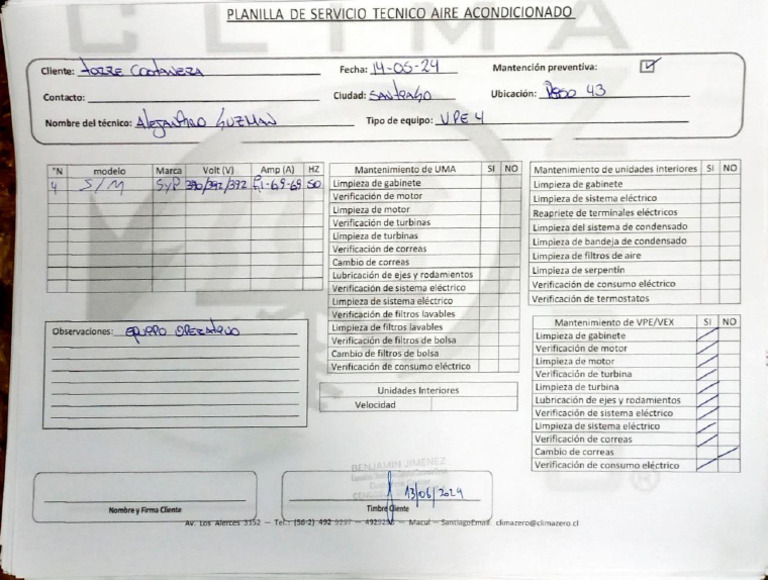 CLIMA
PLANILLA DE SERVICIO TECNICO AIRE ACONDICIONADO
Cliente: Torre Costanera Fecha: 14-05-24 Mantención preventiva: ☑
Contacto: Ciudad: Santiago Ubicación: Piso 43
Nombre del técnico: Alejandro Guzman Tipo de equipo: VPE 4
°N modelo Marca Volt (V) Amp (A) HZ
4 S/M SyP 390/392/392 -6.9-6.9 50
Mantenimiento de UMA SI NO
Limpieza de gabinete
Verificación de motor
Limpieza de motor
Verificación de turbinas
Limpieza de turbinas
Verificación de correas
Cambio de correas
Lubricación de ejes y rodamientos
Verificación de sistema eléctrico
Limpieza de sistema eléctrico
Verificación de filtros lavables
Limpieza de filtros lavables
Verificación de filtros de bolsa
Cambio de filtros de bolsa
Verificación de consumo eléctrico
Unidades Interiores
Velocidad
Mantenimiento de unidades interiores SI NO
Limpieza de gabinete
Limpieza de sistema eléctrico
Reapriete de terminales eléctricos
Limpieza del sistema de condensado
Limpieza de bandeja de condensado
Limpieza de filtros de aire
Limpieza de serpentin
Verificación de consumo eléctrico
Verificación de termostatos
Mantenimiento de VPE/VEX SI NO
Limpieza de gabinete /
Verificación de motor /
Limpieza de motor /
Verificación de turbina /
Limpieza de turbina /
Lubricación de ejes y rodamientos /
Verificación de sistema eléctrico /
Limpieza de sistema eléctrico /
Verificación de correas /
Cambio de correas /
Verificación de consumo eléctrico /
Observaciones: Equipo operativo
BENJAMIN JIMENEZ
13/06/2024
Nombre y Firma Cliente
Timbre Cliente
Av. Los Alerces 3152 – Tel.: (56-2) 492 – Macul – Santiago Email: climazero@climazero.cl